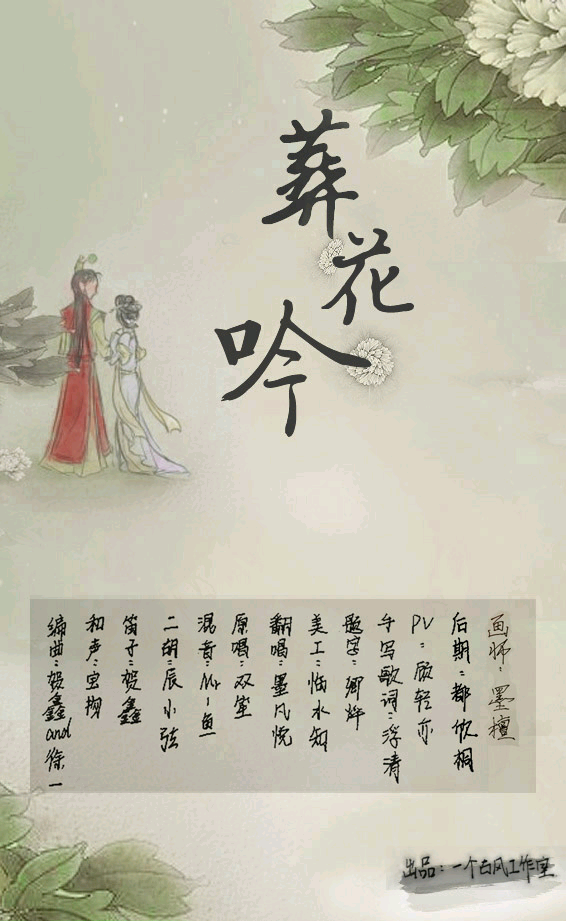 葬花吟
画师：墨檀
后期：都忱桐
PV：顾轻亦
手写歌词：浮清
题字：卿烨
美工：临水知
翻唱：墨凡悦
原唱：双笙
混音：Mr-鱼
二胡：辰小弦
笛子：贺鑫
和声：宝掬
编曲：贺鑫and徐一
出品：一个古风工作室